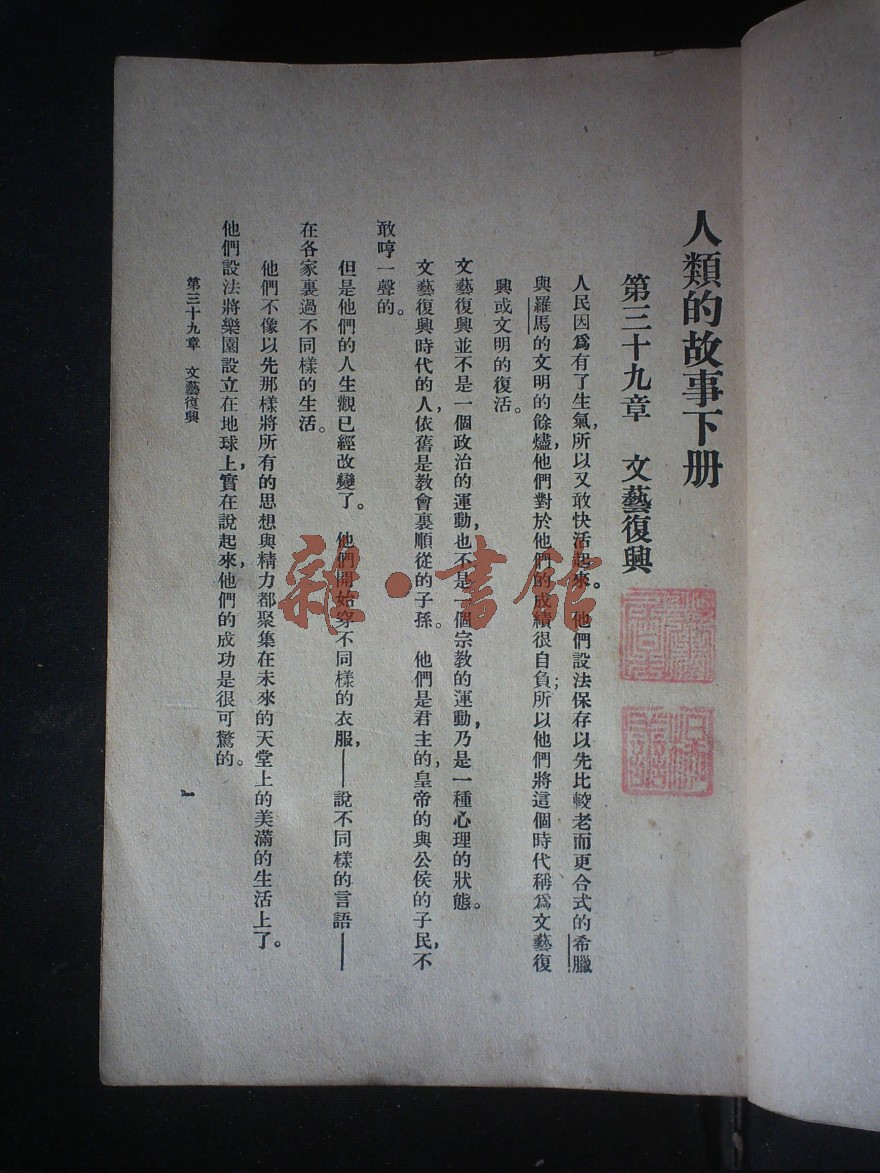 人類的故事下册
第三十九章　文藝復興
人民因爲有了生氣，所以又敢快活起來。他們設法保存以先比較老而更合式的希臘
與羅馬的文明的餘燼，他們對於他們的成績很自負；所以他們將這個時代稱爲文藝復
興或文明的復活。
文藝復興並不是一個政治的運動，也不是一個宗教的運動，乃是一種心理的狀態。
文藝復興時代的人，依舊是教會裏順從的子孫。他們是君主的，皇帝的與公侯的子民，不
敢哼一聲的。
但是他們的人生觀已經改變了。他們開始穿不同樣的衣服，——說不同樣的言語——
在各家裏過不同樣的生活。
他們不像以先那樣將所有的思想與精力都聚集在未來的天堂上的美滿的生活上了。
他們設法將樂園設立在地球上，實在說起來，他們的成功是很可驚的。
第三十九章　文藝復興
一
雜·書館